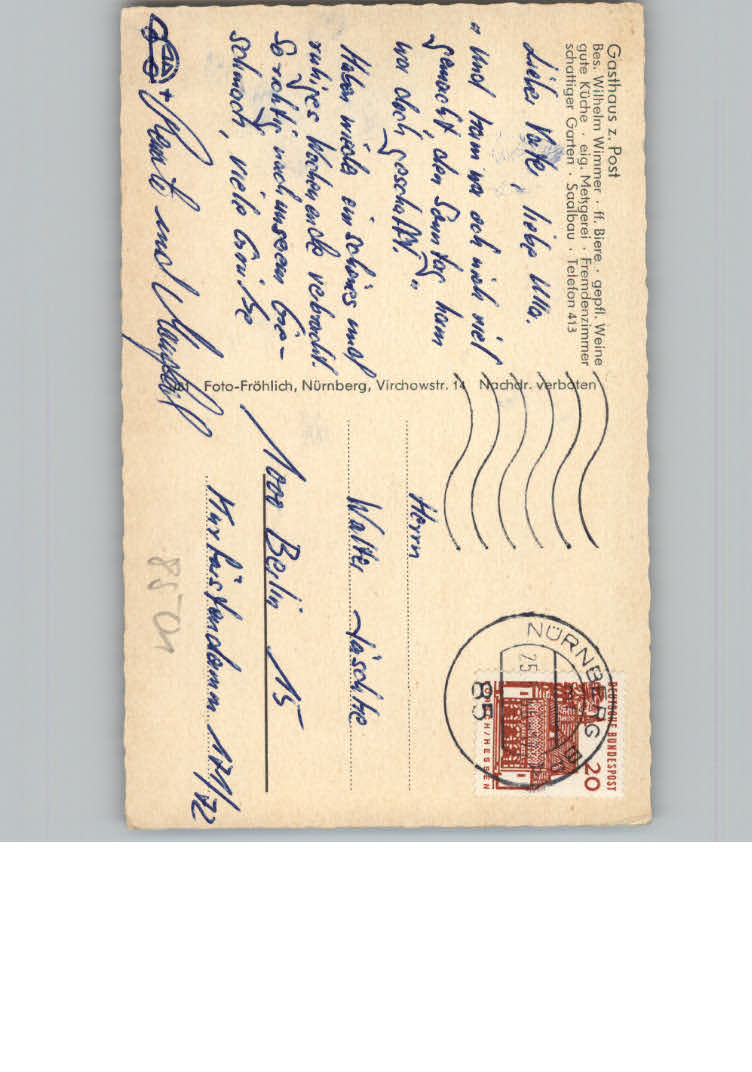 Gasthaus z. Post
Bes. Wilhelm Wimmer · ff. Biere · gepfl. Weine
gute Küche · eig. Metzgerei · Fremdenzimmer
schattiger Garten · Saalbau · Telefon 413
Lieber Vater, liebe Ulla.
" und ham wa och nich viel
gemacht, den Sonntag ham
wa doch geschafft. "
Haben wieder ein schönes und
ruhiges Wochenende verbracht.
So richtig nach unserem Ge-
schmack, viele Grüße
Renate und
Foto-Fröhlich, Nürnberg, Virchowstr. 14 Nachdr. verboten
NÜRNBERG
25
85
DEUTSCHE BUNDESPOST
20
LORSCH/HESSEN
Herrn
Walter Jäschke
1000 Berlin 15
Kurfürstendamm 171/72
8501